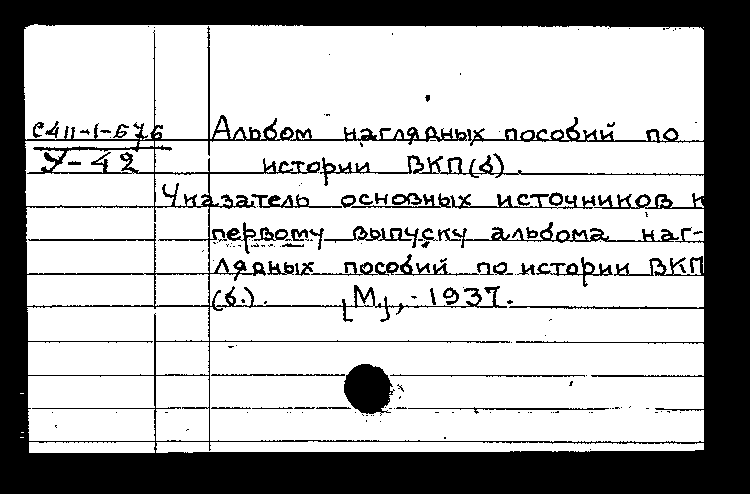 С411-1-676 Альбом наглядных пособий по
У-42 истории ВКП(б).
Указатель основных источников к
первому выпуску альбома наг-
лядных пособий по истории ВКП
(б.). [М.], - 1937.